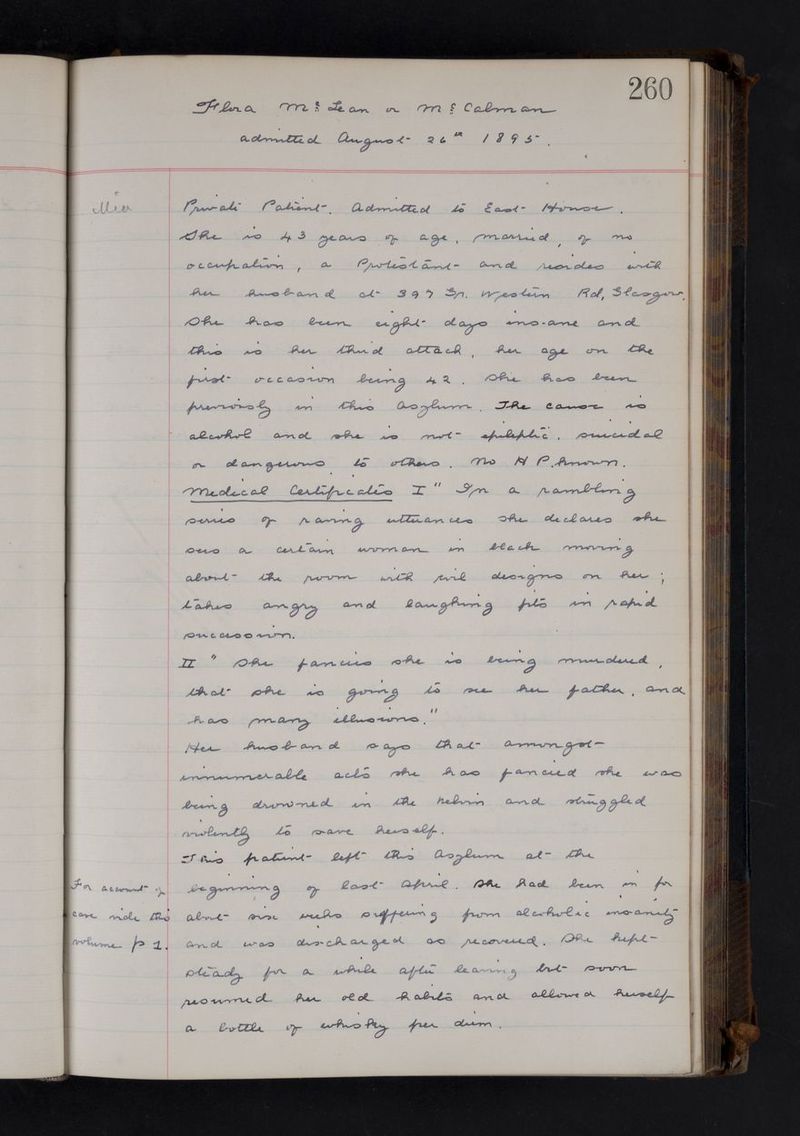 260
Flora McLean or McCalman
admitted August 26th 1895.
Private Patient. Admitted to East House.
She is 43 years of age, married, of no
occupation, a Protestant and resides with
her husband at 397 Gr. Western Rd, Glasgow.
She has been eight days insane and
this is her third attack, her age on the
first occasion being 42. She has been
previously in this Asylum. The cause is
alcohol and she is not epileptic, suicidal
or dangerous to others. No H P. known.
Medical Certificates I " In a rambling
series of raving utterances she declares she
sees a certain woman in black moving
about the room with evil designs on her;
takes angry and laughing fits in rapid
succession.
II " She fancies she is being murdered,
that she is going to see her father, and
has many illusions."
Her husband says that amongst
innumerable acts she has fancied she was
being drowned in the Kelvin and struggled
violently to save herself.
This patient left this Asylum at the
For account of
case vide this
volume p 1.
beginning of last April. She had been in for
about six weeks suffering from alcoholic insanity
and was discharged as recovered. She kept
steady for a while after leaving but soon
resumed her old habits and allowed herself
a bottle of whisky per diem.